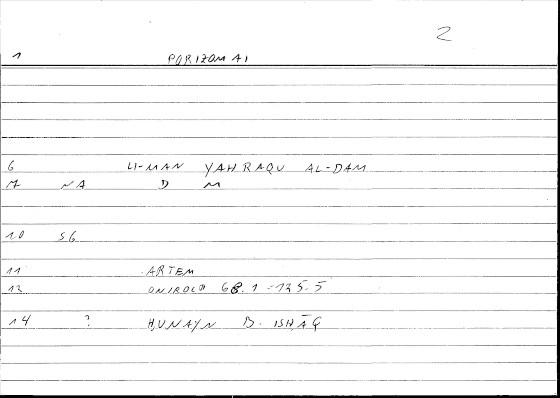 2
1 PORIZOMAI
6 LI-MAN YAHRAQU AL-DAM
7 NA D M
10 S6
11 ARTEM
12 ONIROCR 68.1-125.5
14 ? ḤUNAYN B. ISḤĀQ